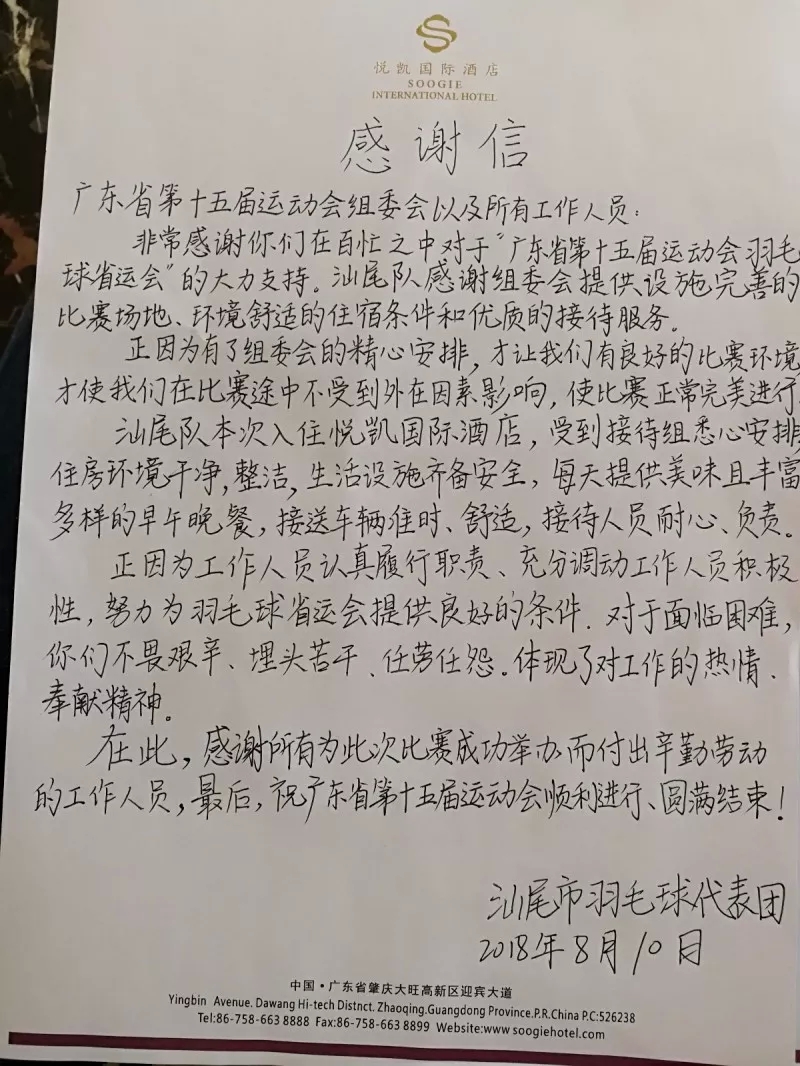 悦凯国际酒店
SOOGIE
INTERNATIONAL HOTEL
感谢信
广东省第十五届运动会组委会以及所有工作人员:
非常感谢你们在百忙之中对于“广东省第十五届运动会羽毛
球省运会”的大力支持。汕尾队感谢组委会提供设施完善的
比赛场地、环境舒适的住宿条件和优质的接待服务。
正因为有了组委会的精心安排,才让我们有良好的比赛环境
才使我们在比赛途中不受到外在因素影响,使比赛正常完美进行
汕尾队本次入住悦凯国际酒店,受到接待组悉心安排,
住房环境干净,整洁,生活设施齐备安全,每天提供美味且丰富
多样的早午晚餐,接送车辆准时、舒适,接待人员耐心、负责。
正因为工作人员认真履行职责、充分调动工作人员积极
性,努力为羽毛球省运会提供良好的条件.对于面临困难,
你们不畏艰辛、埋头苦干、任劳任怨。体现了对工作的热情、
奉献精神。
在此,感谢所有为此次比赛成功举办而付出辛勤劳动
的工作人员,最后,祝广东省第十五届运动会顺利进行、圆满结束!
汕尾市羽毛球代表团
2018年8月10日
中国·广东省肇庆大旺高新区迎宾大道
Yingbin Avenue. Dawang Hi-tech Distnct. Zhaoqing.Guangdong Province.P.R.China P.C:526238
Tel:86-758-663 8888 Fax:86-758-663 8899 Website:www.soogiehotel.com